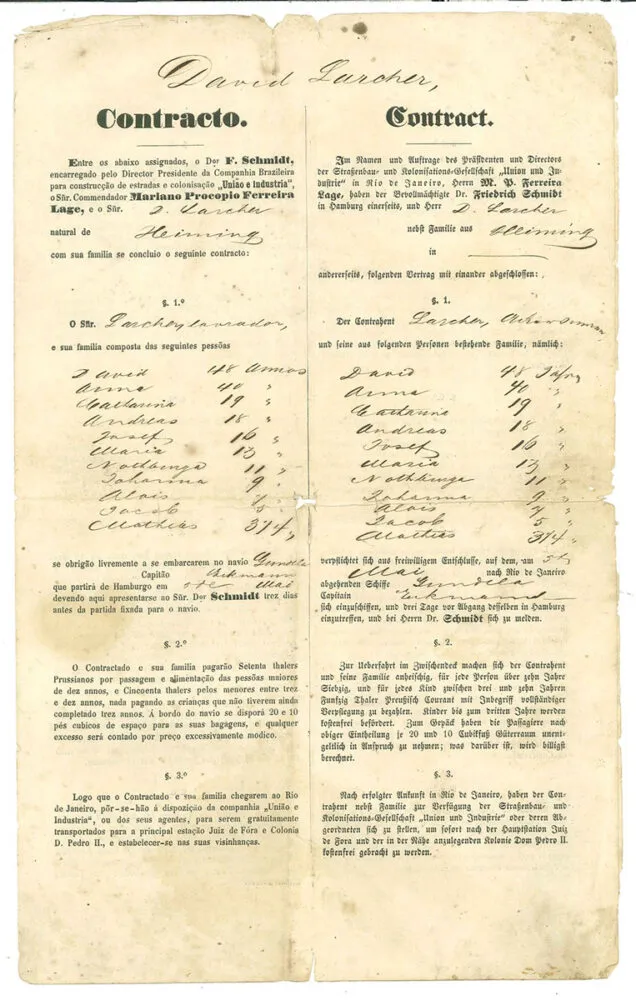 David Larcher,
Contracto.
Entre os abaixo assignados, o Dor F. Schmidt,
encarregado pelo Director Presidente da Companhia Brazileira
para construcção de estradas e colonisação „União e Industria",
o Sñr. Commendador Mariano Procopio Ferreira
Lage, e o Sñr. D. Larcher
natural de Heiming
com sua familia se concluio o seguinte contracto:
§. 1.º
O Sñr. Larcher, lavrador,
e sua familia composta das seguintes pessōas
David 48 Annos
Anna 40 "
Catharina 19 "
Andreas 18 "
Josef 16 "
Maria 13 "
Nothburga 11 "
Johanna 9 "
Alois 7 "
Jacob 5 "
Mathias 3/4 "
se obrigão livremente a se embarcarem no navio Gundela
Capitão
que partirá de Hamburgo em 5te Mai
devendo aqui apresentarse ao Sñr. Dor Schmidt trez dias
antes da partida fixada para o navio.
§. 2.º
O Contractado e sua familia pagarão Setenta thalers
Prussianos por passagem e alimentação das pessōas maiores
de dez annos, e Cincoenta thalers pelos menores entre trez
e dez annos, nada pagando as crianças que não tiverem ainda
completado trez annos. Á bordo do navio se disporá 20 e 10
pés cubicos de espaço para as suas bagagens, e qualquer
excesso será contado por preço excessivamente modico.
§. 3.º
Logo que o Contractado e sua familia chegarem ao Rio
de Janeiro, pôr-se-hão á dispozição da companhia „União e
Industria", ou dos seus agentes, para serem gratuitamente
transportados para a principal estação Juiz de Fóra e Colonia
D. Pedro II., e estabelecer-se nas suas visinhanças.
Contract.
Im Namen und Auftrage des Präsidenten und Directors
der Straßenbau- und Kolonisations-Gesellschaft „Union und In-
dustrie" in Rio de Janeiro, Herrn M. P. Ferreira
Lage, haben der Bevollmächtigte Dr. Friedrich Schmidt
in Hamburg einerseits, und Herr D. Larcher
nebst Familie aus Heiming
in
andererseits, folgenden Vertrag mit einander abgeschlossen:
§. 1.
Der Contrahent Larcher, Ackersmann
und seine aus folgenden Personen bestehende Familie, nämlich:
David 48 Jahr
Anna 40 "
Catharina 19 "
Andreas 18 "
Josef 16 "
Maria 13 "
Nothburga 11 "
Johanna 9 "
Alois 7 "
Jacob 5 "
Mathias 3/4 "
verpflichtet sich aus freiwilligem Entschlusse, auf dem, am 5t
Mai nach Rio de Janeiro
abgehenden Schiffe Gundela
Capitain
sich einzuschiffen, und drei Tage vor Abgang desselben in Hamburg
einzutreffen, und bei Herrn Dr. Schmidt sich zu melden.
§. 2.
Zur Ueberfahrt im Zwischendeck machen sich der Contrahent
und seine Familie anheischig, für jede Person über zehn Jahre
Siebzig, und für jedes Kind zwischen drei und zehn Jahren
Funfzig Thaler Preußisch Courant mit Inbegriff vollständiger
Verpflegung zu bezahlen. Kinder bis zum dritten Jahre werden
kostenfrei befördert. Zum Gepäck haben die Passagiere nach
obiger Eintheilung je 20 und 10 Cubikfuß Güterraum unent-
geltlich in Anspruch zu nehmen; was darüber ist, wird billigst
berechnet.
§. 3.
Nach erfolgter Ankunft in Rio de Janeiro, haben der Con-
trahent nebst Familie zur Verfügung der Straßenbau- und
Kolonisations-Gesellschaft „Union und Industrie" oder deren Ab-
geordneten sich zu stellen, um sofort nach der Hauptstation Juiz
de Fora und der in der Nähe anzulegenden Kolonie Dom Pedro II.
kostenfrei gebracht zu werden.